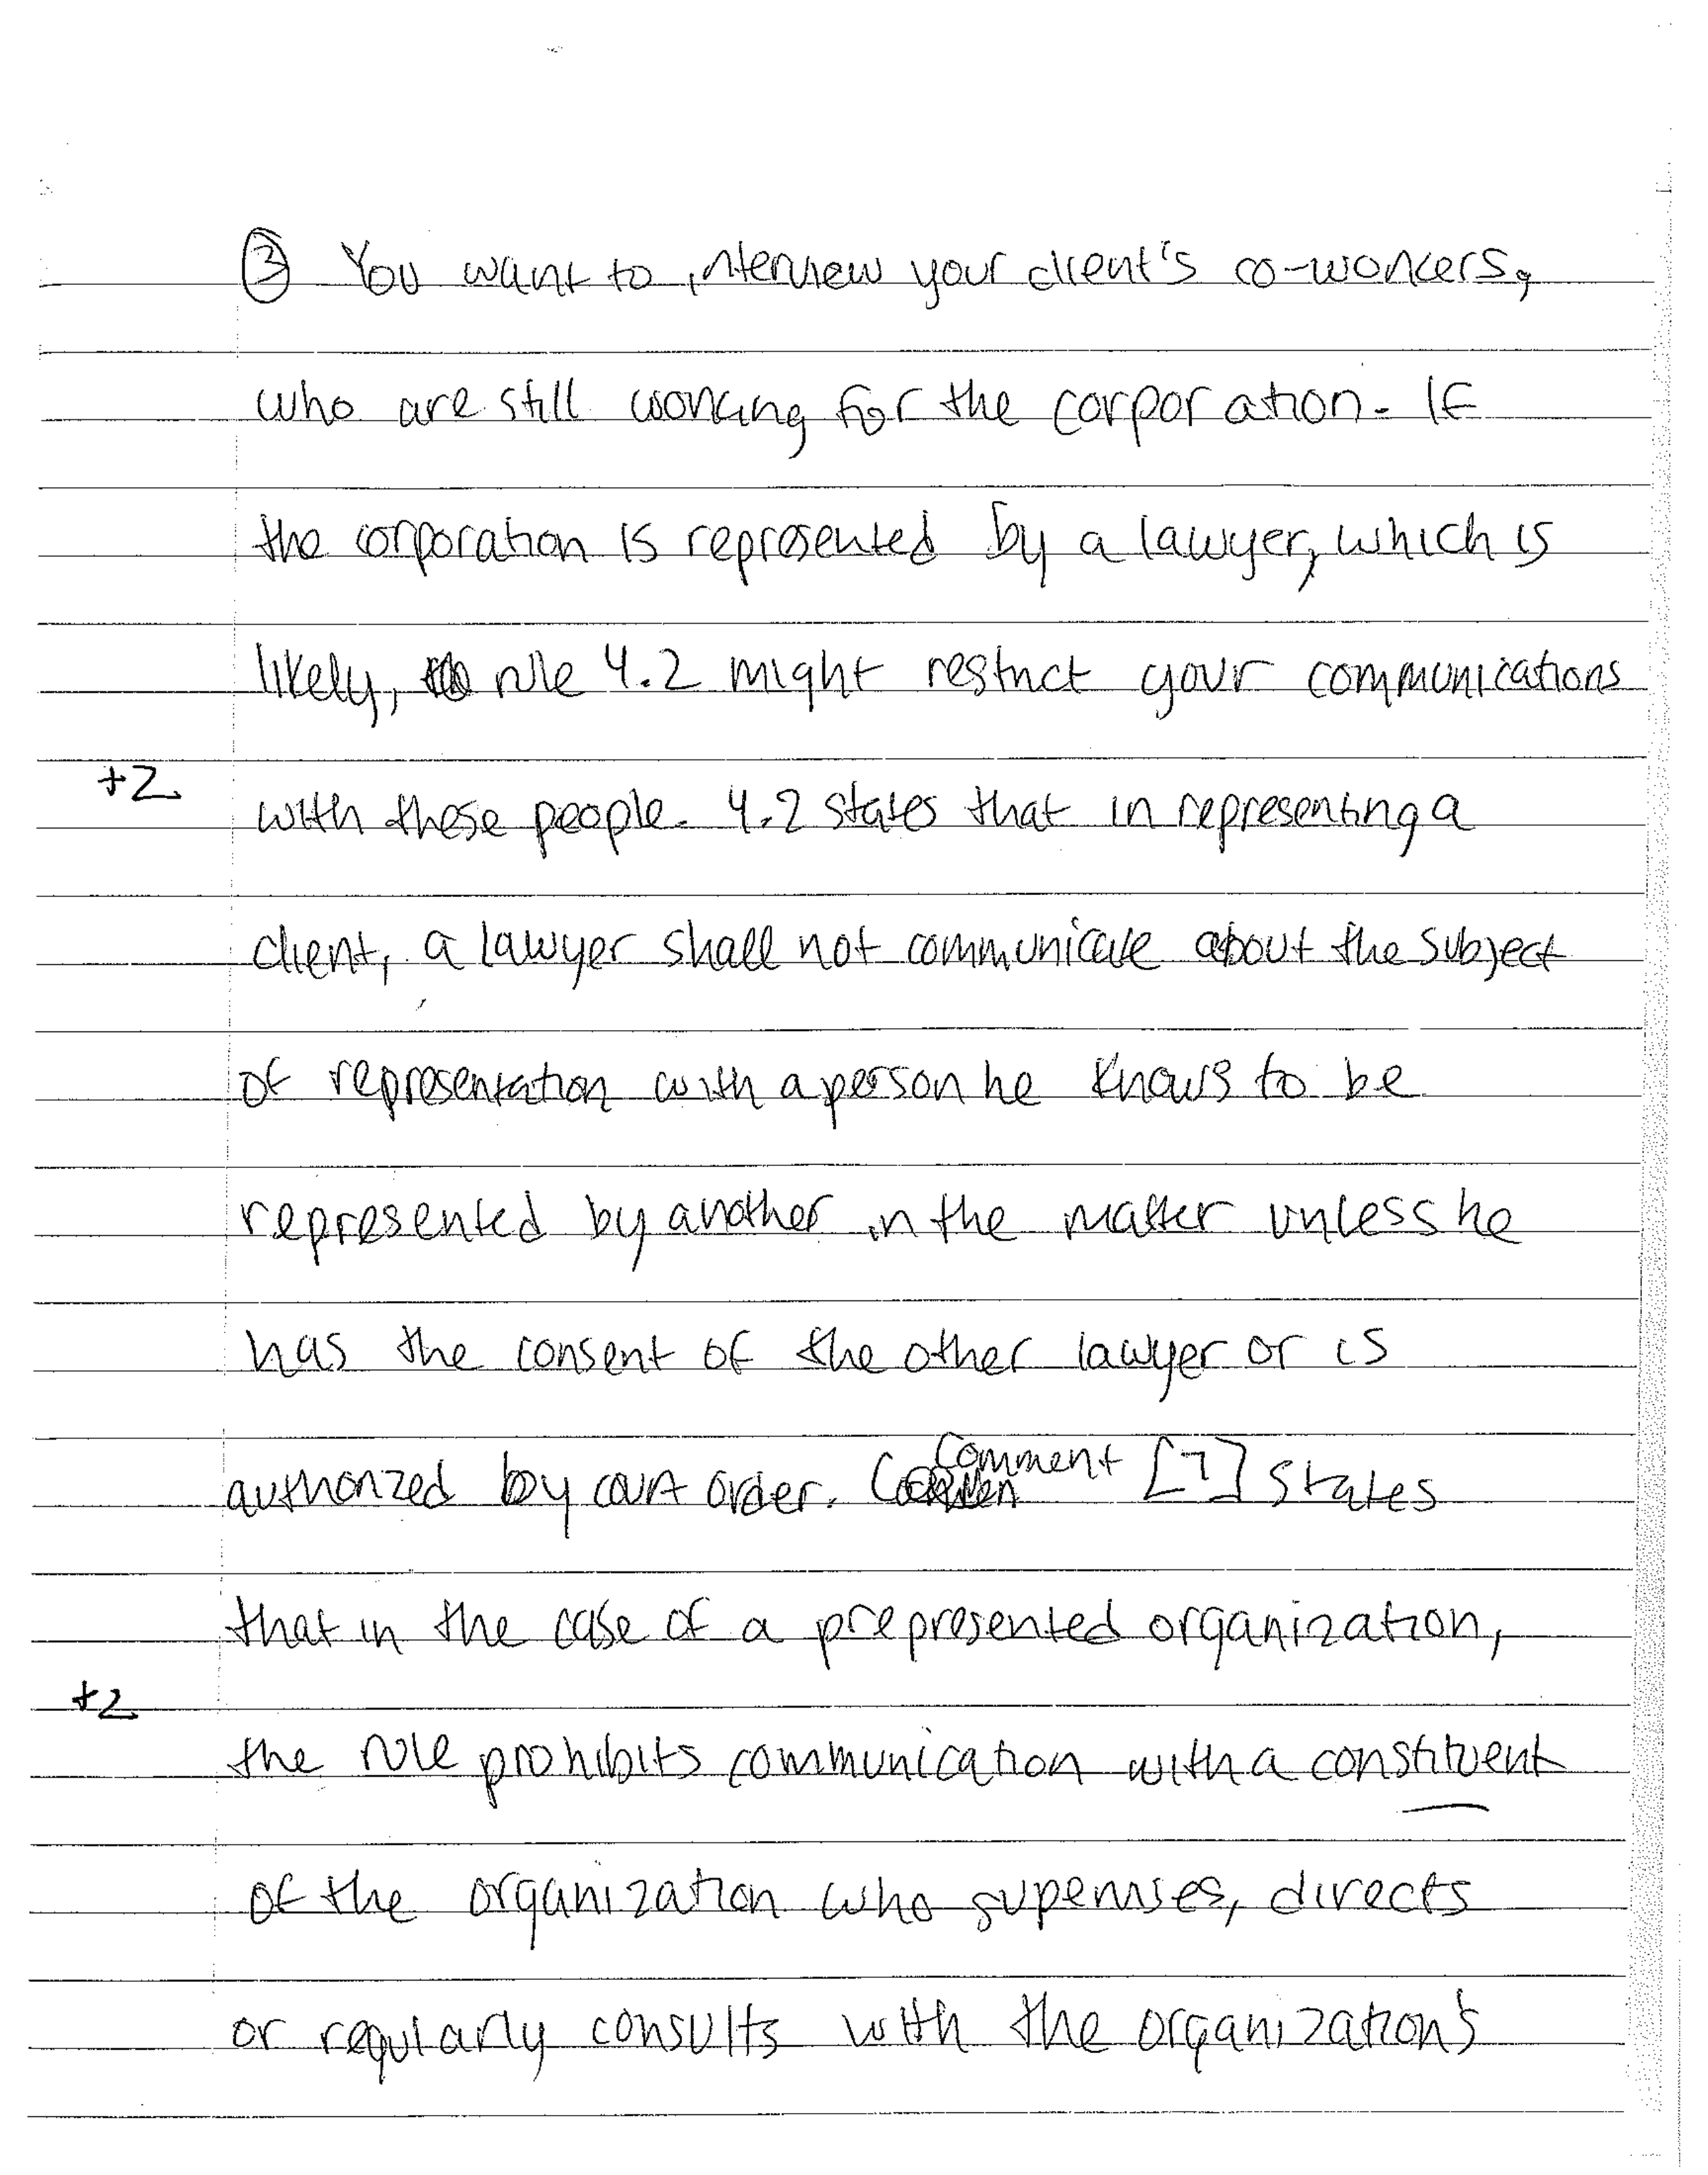 ③ You want to interview your client's co-workers,
who are still working for the corporation. If
the corporation is represented by a lawyer, which is
likely, rule 4.2 might restrict your communications
+2
with these people. 4.2 states that in representing a
client, a lawyer shall not communicate about the subject
of representation with a person he knows to be
represented by another in the matter unless he
has the consent of the other lawyer or is
authorized by court order. Comment [7] states
that in the case of a prepresented organization,
+2
the rule prohibits communication with a constituent
of the organization who supervises, directs
or regularly consults with the organization's